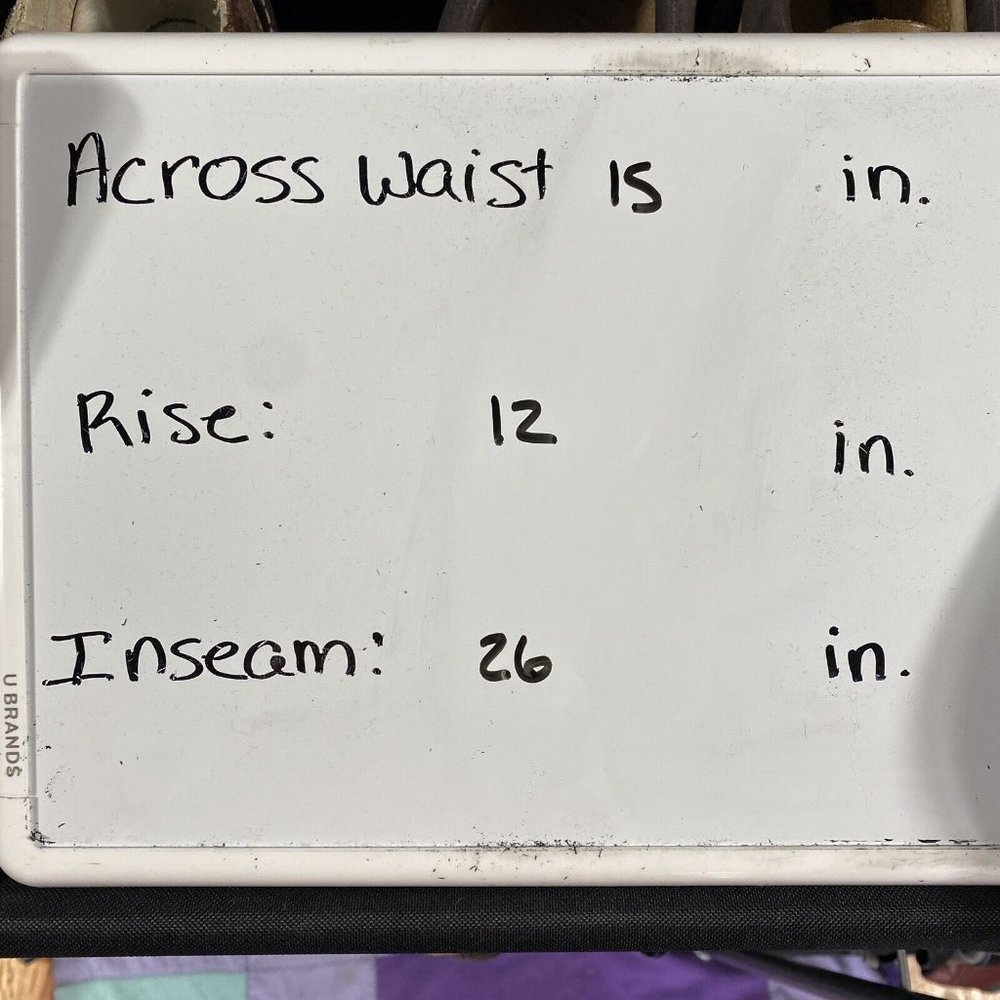 Across Waist 15 in.
Rise: 12 in.
Inseam: 26 in.
U BRANDS